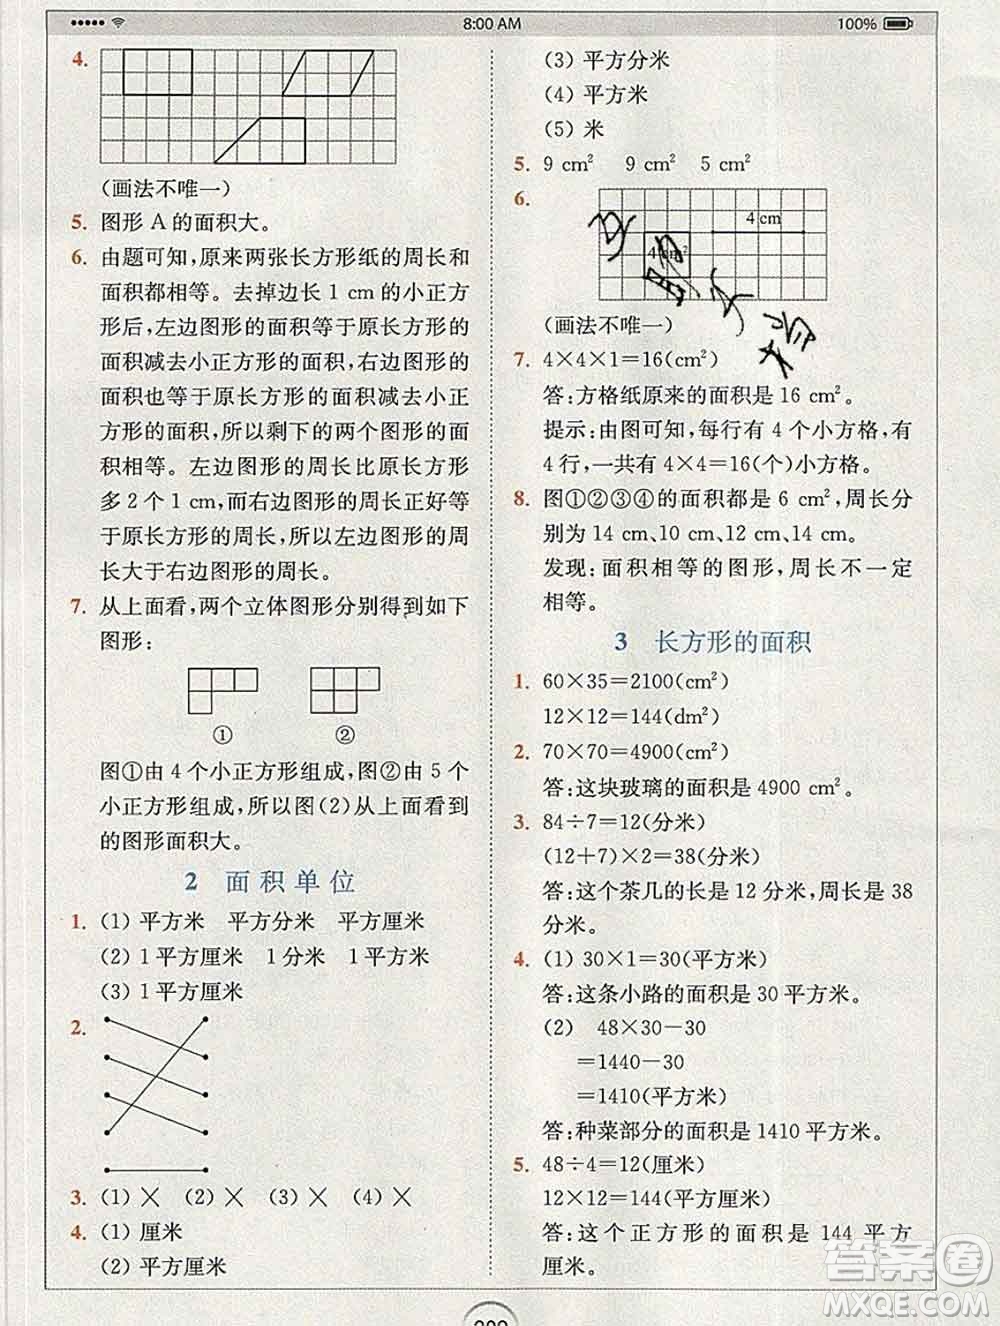 8:00 AM
100%
4.
(画法不唯一)
5. 图形 A 的面积大。
6. 由题可知,原来两张长方形纸的周长和
面积都相等。去掉边长 1 cm 的小正方
形后,左边图形的面积等于原长方形的
面积减去小正方形的面积,右边图形的
面积也等于原长方形的面积减去小正
方形的面积,所以剩下的两个图形的面
积相等。左边图形的周长比原长方形
多 2 个 1 cm,而右边图形的周长正好等
于原长方形的周长,所以左边图形的周
长大于右边图形的周长。
7. 从上面看,两个立体图形分别得到如下
图形:
① ②
图①由 4 个小正方形组成,图②由 5 个
小正方形组成,所以图(2)从上面看到
的图形面积大。
2 面积单位
1. (1) 平方米 平方分米 平方厘米
(2) 1 平方厘米 1 平方分米 1 平方米
(3) 1 平方厘米
2.
3. (1) × (2) × (3) × (4) ×
4. (1) 厘米
(2) 平方厘米
(3) 平方分米
(4) 平方米
(5) 米
5. 9 cm² 9 cm² 5 cm²
6.
4 cm
4 cm²
(画法不唯一)
7. 4×4×1=16(cm²)
答:方格纸原来的面积是 16 cm²。
提示:由图可知,每行有 4 个小方格,有
4 行,一共有 4×4=16(个)小方格。
8. 图①②③④的面积都是 6 cm²,周长分
别为 14 cm,10 cm,12 cm,14 cm。
发现:面积相等的图形,周长不一定
相等。
3 长方形的面积
1. 60×35=2100(cm²)
12×12=144(dm²)
2. 70×70=4900(cm²)
答:这块玻璃的面积是 4900 cm²。
3. 84÷7=12(分米)
(12+7)×2=38(分米)
答:这个茶几的长是 12 分米,周长是 38
分米。
4. (1) 30×1=30(平方米)
答:这条小路的面积是 30 平方米。
(2) 48×30-30
=1440-30
=1410(平方米)
答:种菜部分的面积是 1410 平方米。
5. 48÷4=12(厘米)
12×12=144(平方厘米)
答:这个正方形的面积是 144 平方
厘米。
答案圈
MXQE.COM